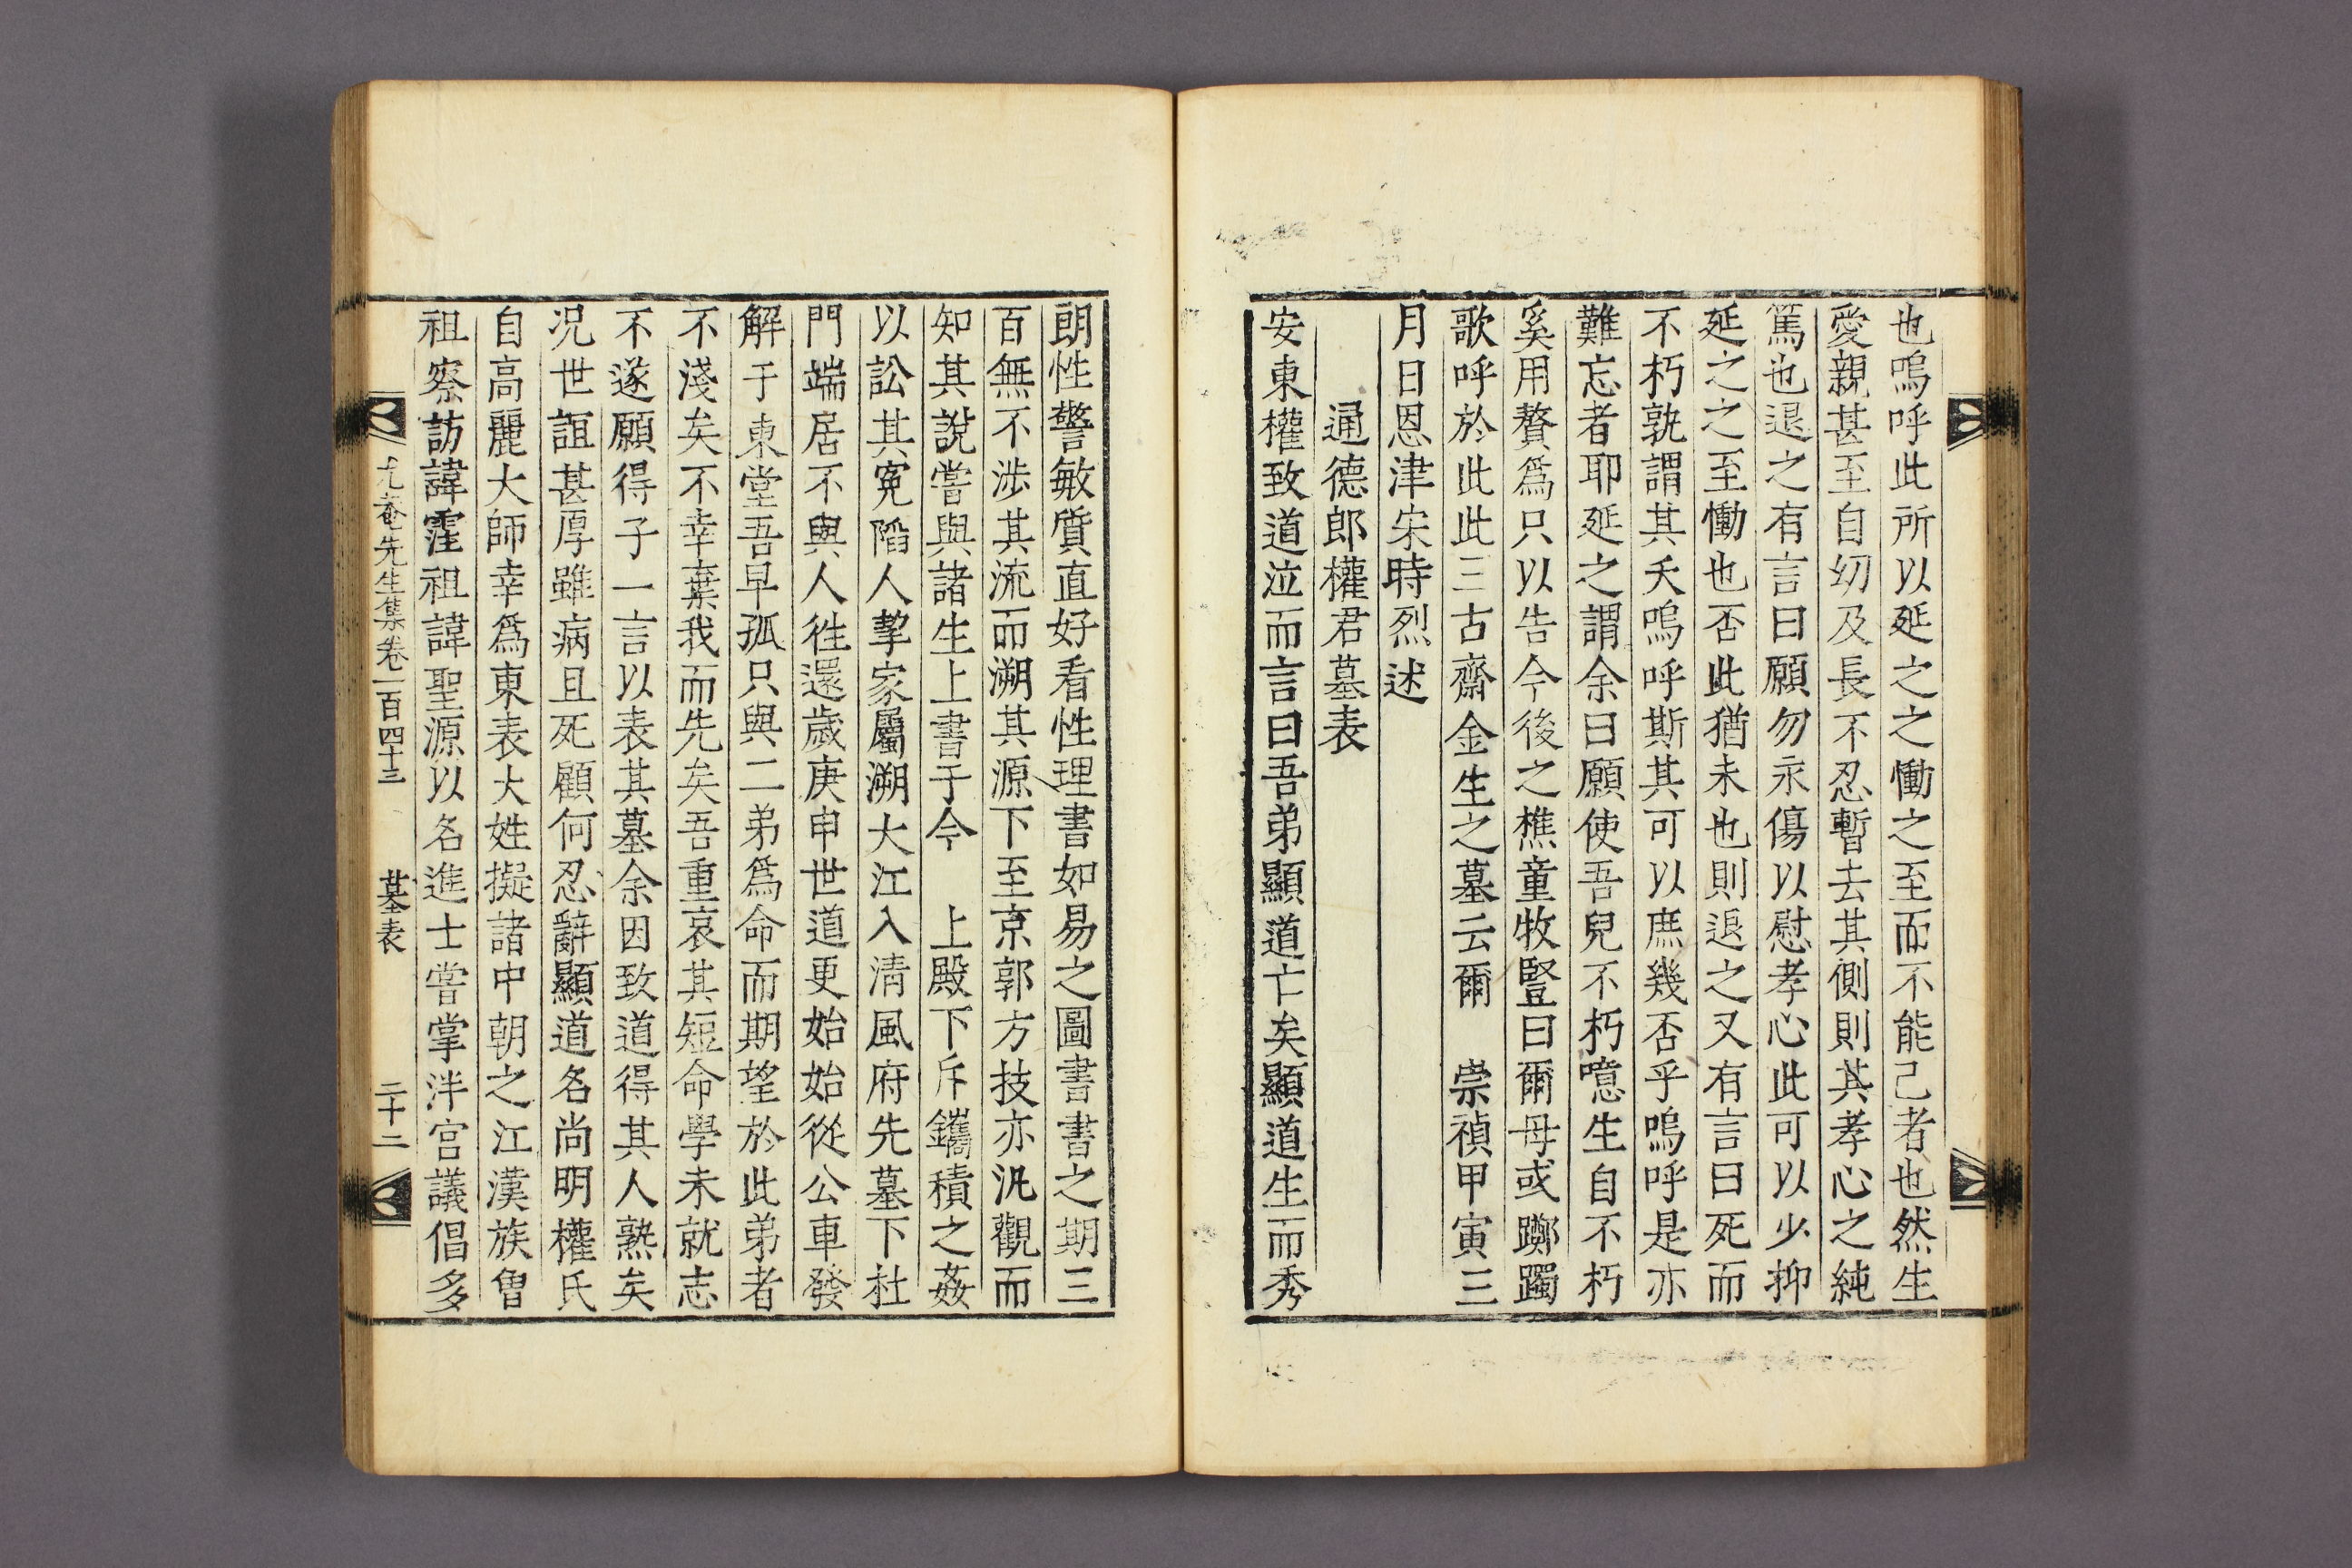 也嗚呼此所以延之之慟之至而不能已者也然生
愛親甚至自幼及長不忍暫去其側則其孝心之純
篤也退之有言曰願勿永傷以慰孝心此可以少抑
延之之至慟也否此猶未也則退之又有言曰死而
不朽孰謂其夭嗚呼斯其可以庶幾否乎嗚呼是亦
難忘者耶延之謂余曰願使吾兒不朽噫生自不朽
奚用贅爲只以告今後之樵童牧豎曰爾母或躑躅
歌呼於此此三古齋金生之墓云爾 崇禎甲寅三
月日恩津宋時烈述
通德郎權君墓表
安東權致道泣而言曰吾弟顯道亡矣顯道生而秀
朗性警敏質直好看性理書如易之圖書書之期三
百無不涉其流而溯其源下至京郭方技亦汎觀而
知其說嘗與諸生上書于今 上殿下斥鑴積之姦
以訟其冤陷人挈家屬溯大江入清風府先墓下杜
門端居不與人徃還歲庚申世道更始始從公車發
解于東堂吾早孤只與二弟爲命而期望於此弟者
不淺矣不幸棄我而先矣吾重哀其短命學未就志
不遂願得子一言以表其墓余因致道得其人熟矣
况世誼甚厚雖病且死顧何忍辭顯道名尚明權氏
自高麗大師幸爲東表大姓擬諸中朝之江漢族曾
祖察訪諱霔祖諱聖源以名進士嘗掌泮宮議倡多
尤菴先生集卷一百四十三 墓表 二十二